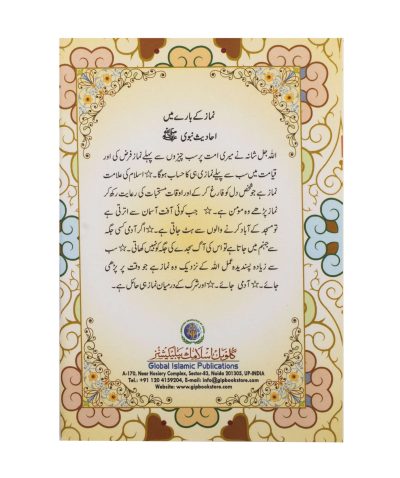 نماز کے بارے میں
احادیث نبوی ﷺ
اللہ جل شانہ نے میری امت پر سب چیزوں سے پہلے نماز فرض کی اور
قیامت میں سب سے پہلے نماز ہی کا حساب ہوگا۔ ☆ اسلام کی علامت
نماز ہے جو شخص دل کو فارغ کر کے اور اوقات مستحبات کی رعایت رکھ کر
نماز پڑھے وہ مؤمن ہے۔ ☆ جب کوئی آفت آسمان سے اترتی ہے
تو مسجد کے آباد کرنے والوں سے ہٹ جاتی ہے۔ ☆ اگر آدمی کسی جگہ
سے جہنم میں جاتا ہے تو اس کی آگ سجدے کی جگہ کو نہیں کھاتی۔ ☆ سب
سے زیادہ پسندیدہ عمل اللہ کے نزدیک وہ نماز ہے جو وقت پر پڑھی
جائے۔ ☆ آدمی جائے۔ ☆ اور شرک کے درمیان نماز ہی حائل ہے۔
گلوبل اسلامک پبلیکیشنز
Global Islamic Publications
A-170, Near Hosiery Complex, Sector-83, Noida 201305, UP-INDIA
Tel.: +91 120 4159204, E-mail: info@gipbookstore.com
www.gipbookstore.com